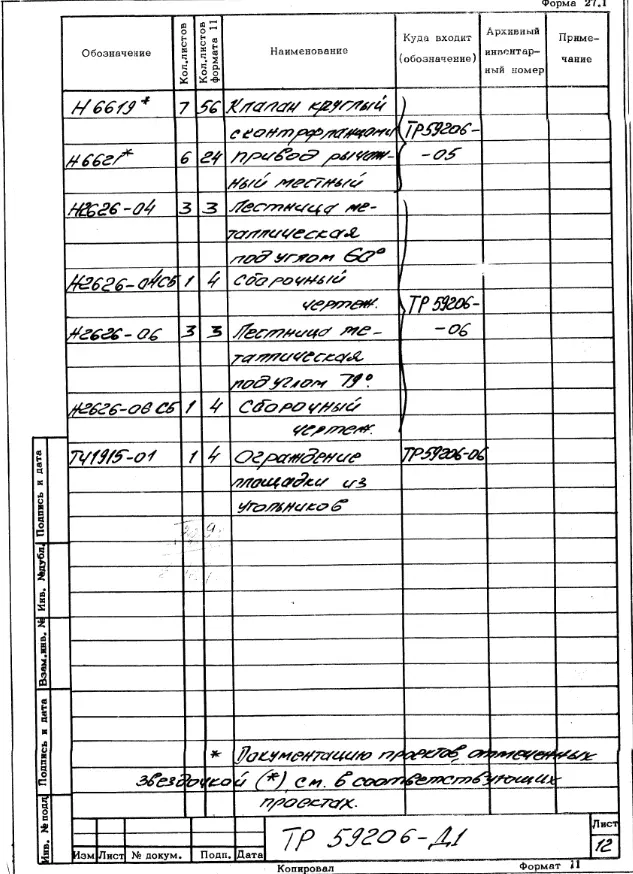 Форма 27.1
Обозначение Кол.листов Кол.листов формата 11 Наименование Куда входит (обозначение) Архивный инвентарный номер Примечание
Н 6619* 7 56 Клапан круглый
с контрфланцами ТР59206-
Н6621* 6 24 Привод рычаж- -05
ный местный
Н2626-04 3 3 Лестница ме-
таллическая
под углом 60°
Н2626-04СБ 1 4 Сборочный
чертеж. ТР 59206-
Н2626-06 3 3 Лестница ме- -06
таллическая
под углом 79°
Н2626-06 СБ 1 4 Сборочный
чертеж.
ТЧ1915-01 1 4 Ограждение ТР59206-06
площадки из
угольников
* Документацию проектов, отмеченных
звездочкой (*) см. в соответствующих
проектах.
Подпись и дата
Инв. №дубл.
Взам.инв. №
Подпись и дата
Инв. № подл
Изм Лист № докум. Подп. Дата
ТР 59206-Д1
Лист
12
Копировал Формат 11